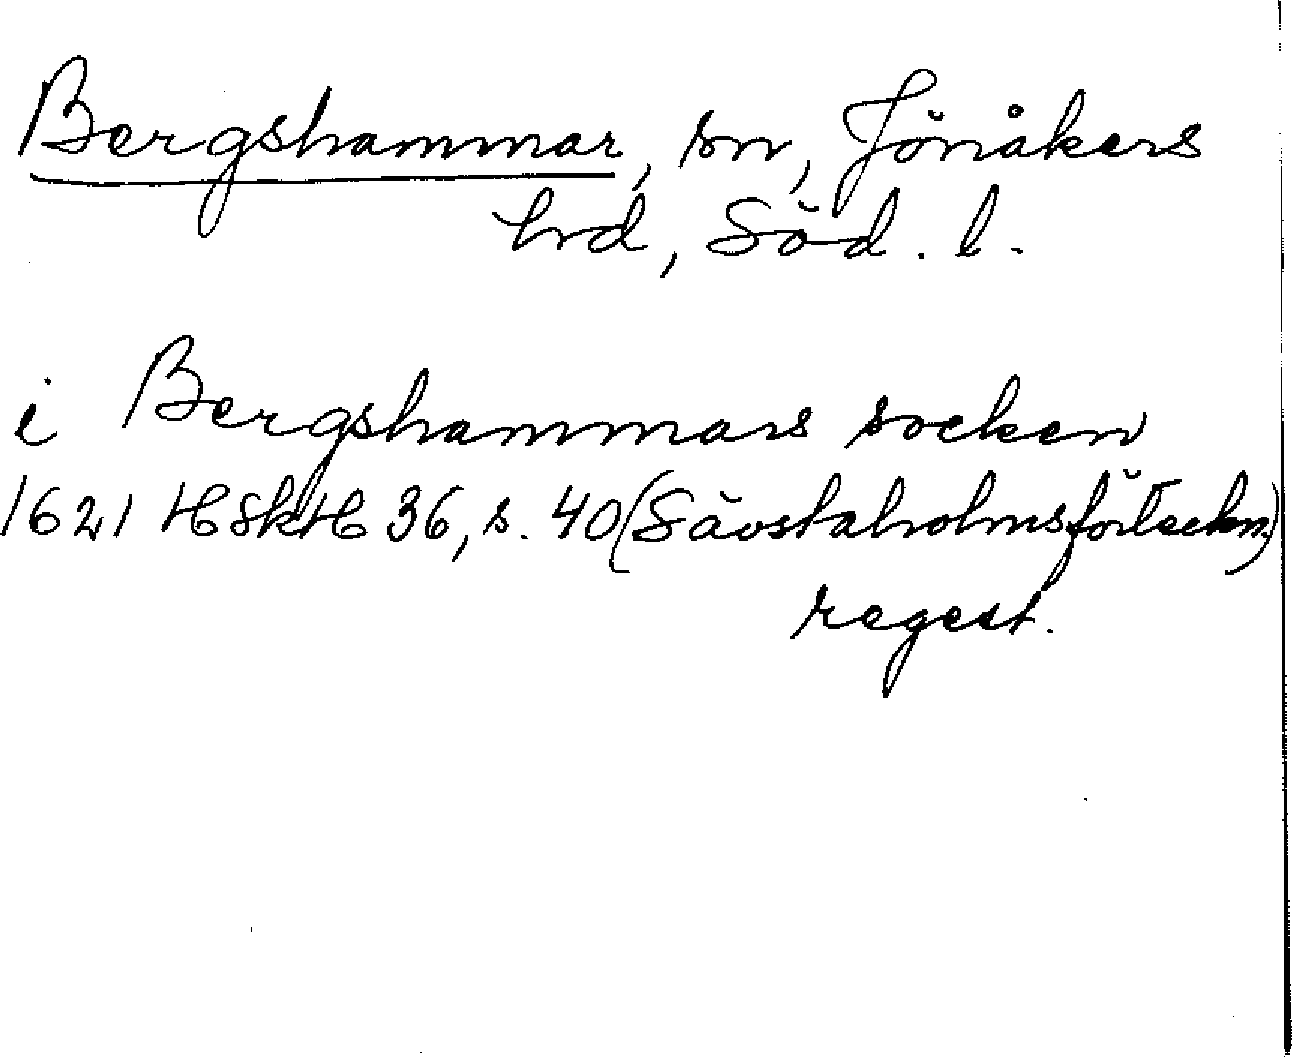 Bergshammar, sn, Jönåkers
hrd, Söd. l.
i Bergshammars socken
1621 HSkH 36, s. 40 (Sävstaholmsförteckn.)
regest.